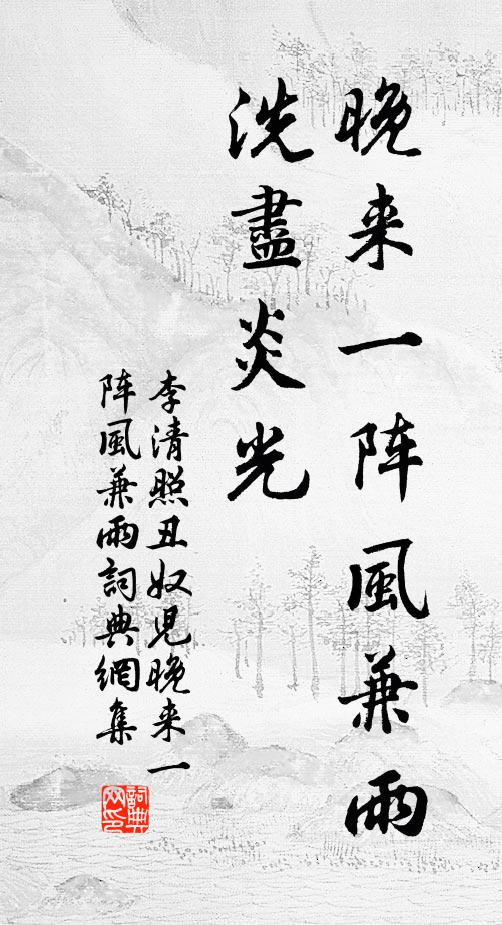 晚来一阵風兼雨
洗盡炎光
李清照丑奴兒晚来一
阵風兼雨詞典網集
詞典
网印